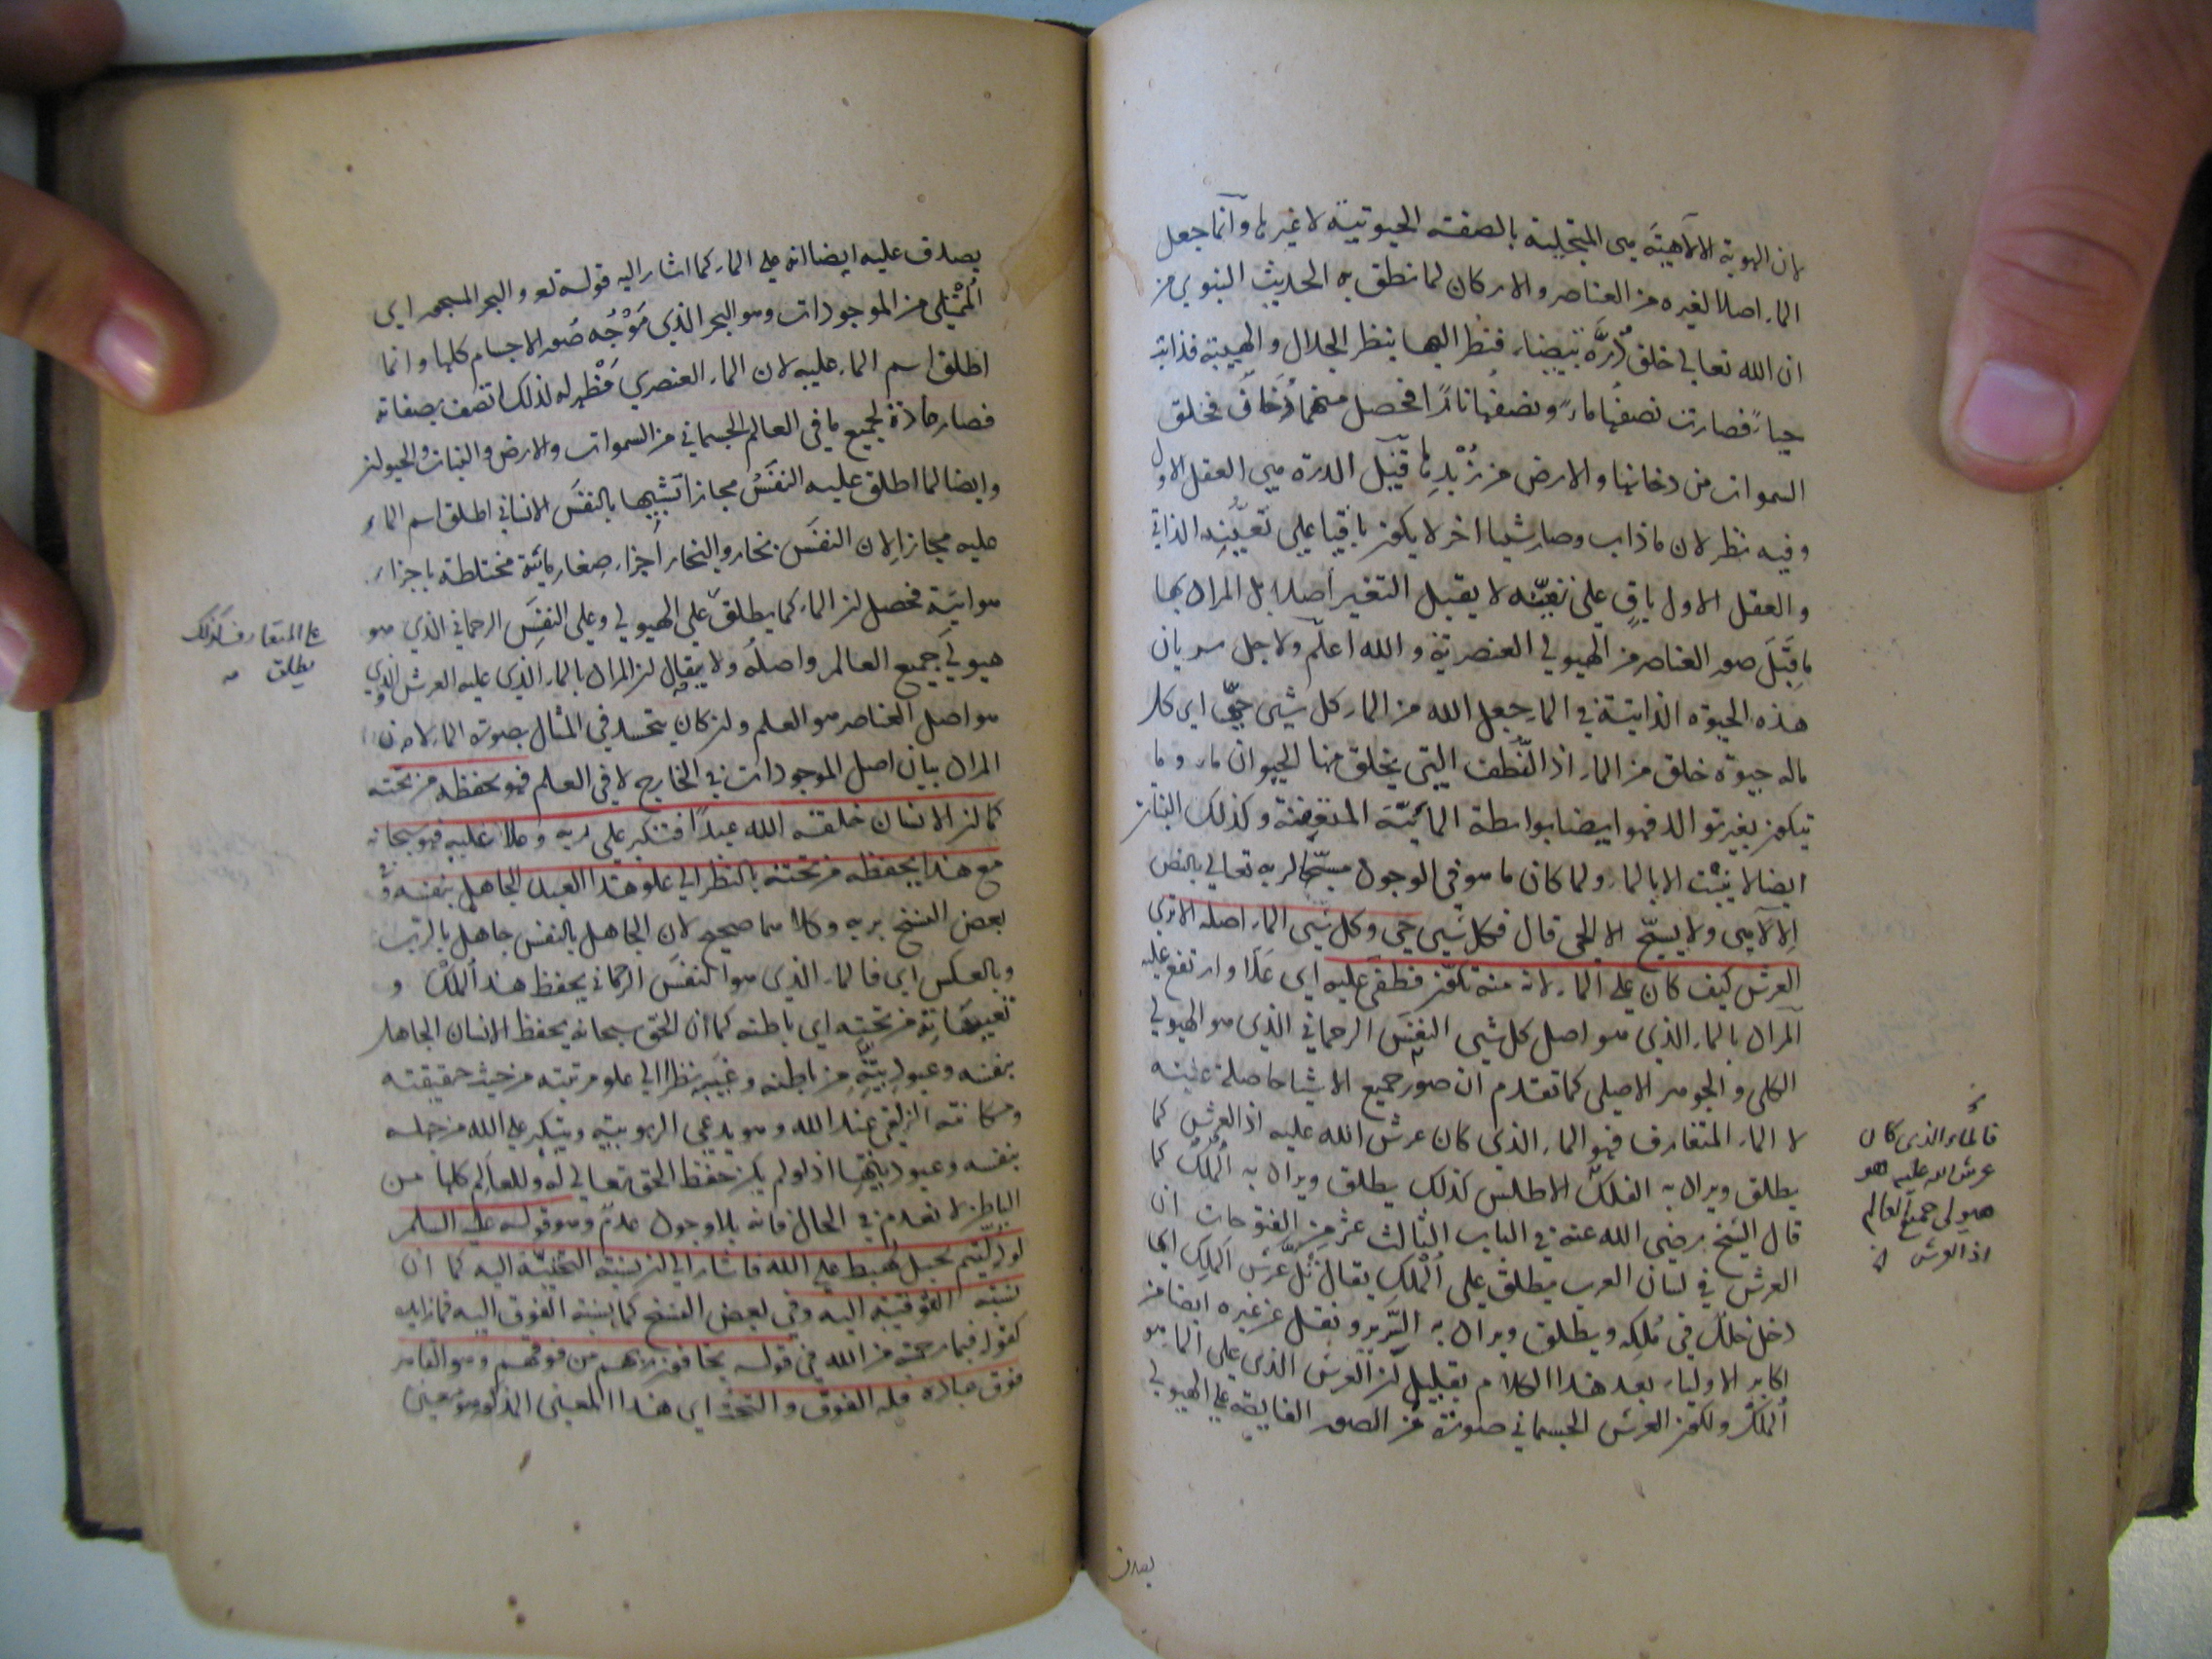 لان الهوية الالاهية هى المتجلية بالصفة الحيوتية لا غيرها وانما جعل
الماء اصلا لغيره من العناصر والاركان لما نطق به الحديث النبوي من
ان الله تعالى خلق دُرَّة بيضاء فنظر اليها بنظر الجلال والهيبة فذابت
حياءً فصارت نصفها ماءً ونصفها نارًا فحصل منهما دُخَان فخلق
السموات من دخانها والارض من زُبْدِها قيل الدرة هى العقل الاول
وفيه نظر لان ماذاب وصار شيئا اخر لا يكون باقيا على تعيُّنِه الذاتي
والعقل الاول باقٍ على تعيّنه لا يقبل التغير اصلا بل المراد بها
ما قَبِلَ صور العناصر من الهيولي العنصرية والله اعلم ولاجل سريان
هذه الحيوة الذاتية في الماء جعل الله من الماء كل شيئ حيّ اى كل
ماله حيوة خلق من الماء اذ النُّطف التي يخلق منها الحيوان ماء وما
يتكون بغير توالد فهو ايضا بواسطة المائيّة المتعفنة وكذلك النبات
ايضا لا ينبت الا بالماء ولما كان ما هو في الوجود مسبّحا لربه تعالي بالنص
الالاهى ولا يسبّح الا الحي قال فكل شيئ حي وكل شيئ الماء اصله الا ترى
العرش كيف كان على الماء لانه منه تكوّن فطفى عليه اى عَلَا وارتفع عليه
المراد بالماء الذي هو اصل كل شيئ النفس الرحماني الذي هو الهيولي
الكلى والجوهر الاصلي كما تقدم ان صور جميع الاشياء حاصلة عنه
لا الماء المتعارف فهو الماء الذي كان عرش الله عليه اذ العرش كما
يطلق ويراد به الفلك الاطلس كذلك يطلق ويراد به المُلك كما
قال الشيخ رضي الله عنه في الباب الثالث عشر من الفتوحات ان
العرش في لسان العرب يطلق على المُلْك يقال ثُل عرش المَلِك اى
دخل خلل في مُلكه ويطلق ويراد به السّرير ونقل عن غيره ايضا من
اكابر الاولياء بعد هذا الكلام بقليل ان العرش الذي على الماء هو
المُلك ولكون العرش الجسماني صورة من الصور الفايضة على الهيولي
فالماء الذى كان
عرش الله عليه هو
هيولى جميع العالم
اذ العرش
يصدق
يصدق عليه ايضا انه على الماء كما اشار اليه قوله تع والبحر المسجور اى
المُمْتلي من الموجودات وهو البحر الذي مَوْجُه صُور الاجسام كلها وانما
اطلق اسم الماء عليه لان الماء العنصري مَظْهر له لذلك اتصف بصفاته
فصار مادة لجميع ما في العالم الجسماني من السموات والارض والنبات والحيوان
وايضا لما اطلق عليه النفَسُ مجازا تشبيها بالنفَس الانساني اطلق اسم الماء
عليه مجازا لان النفَس بخار والبخار اجزاء صِغار مائية مختلطة باجزاء
هوائية فحصل ان الماء كما يطلق على الهيولي وعلى النفَس الرحماني الذي هو
هيولي جميع العالم واصله ولا يقال ان المراد بالماء الذي عليه العرش الذي
هو اصل العناصر هو العلم وان كان يتجسد في المثال بصورة الماء لان
المراد بيان اصل الموجودات في الخارج لا في العلم فهو يحفظه من تحته
كما ان الانسان خلقه الله عبدًا فتكبر على ربه وعلا عليه فهو سبحانه
مع هذا يحفظه من تحته بالنظر الى علو هذا العبد الجاهل بنفسه وفي
بعض النسخ بربه وكلاهما صحيح لان الجاهل بالنفس جاهل بالرب
وبالعكس اى فالماء الذي هو النفَس الرحماني يحفظ هذا المُلك و
تعيناته من تحته اى باطنه كما ان الحق سبحانه يحفظ الانسان الجاهل
بنفسه وعبوديته من باطنه وغيبه نظرا الى علو مرتبته من حيث حقيقته
ومكانته الزلفى عند الله وهو يدعى الربوبية ويتكبر على الله من جهله
بنفسه وعبوديتها اذ لو لم يكن حفظ الحق تعالى له وللعالم كلها من
الباطن لانعدم في الحال فانه بلا وجود عدم وهو قوله عليه السلم
لو دلّيتم بحبل لهبط على الله فاشار الى ان نسبة التحتيّة اليه كما ان
نسبة الفوقية اليه وفي بعض النسخ كما نسبة الفوق اليه فما زايدة
كقوله فبما رحمة من الله في قوله يخافون ربهم من فوقهم وهو القاهر
فوق عباده فله الفوق والتحت اى هذا المعنى المذكور هو معنى
على المتعارف كذلك
يطلق